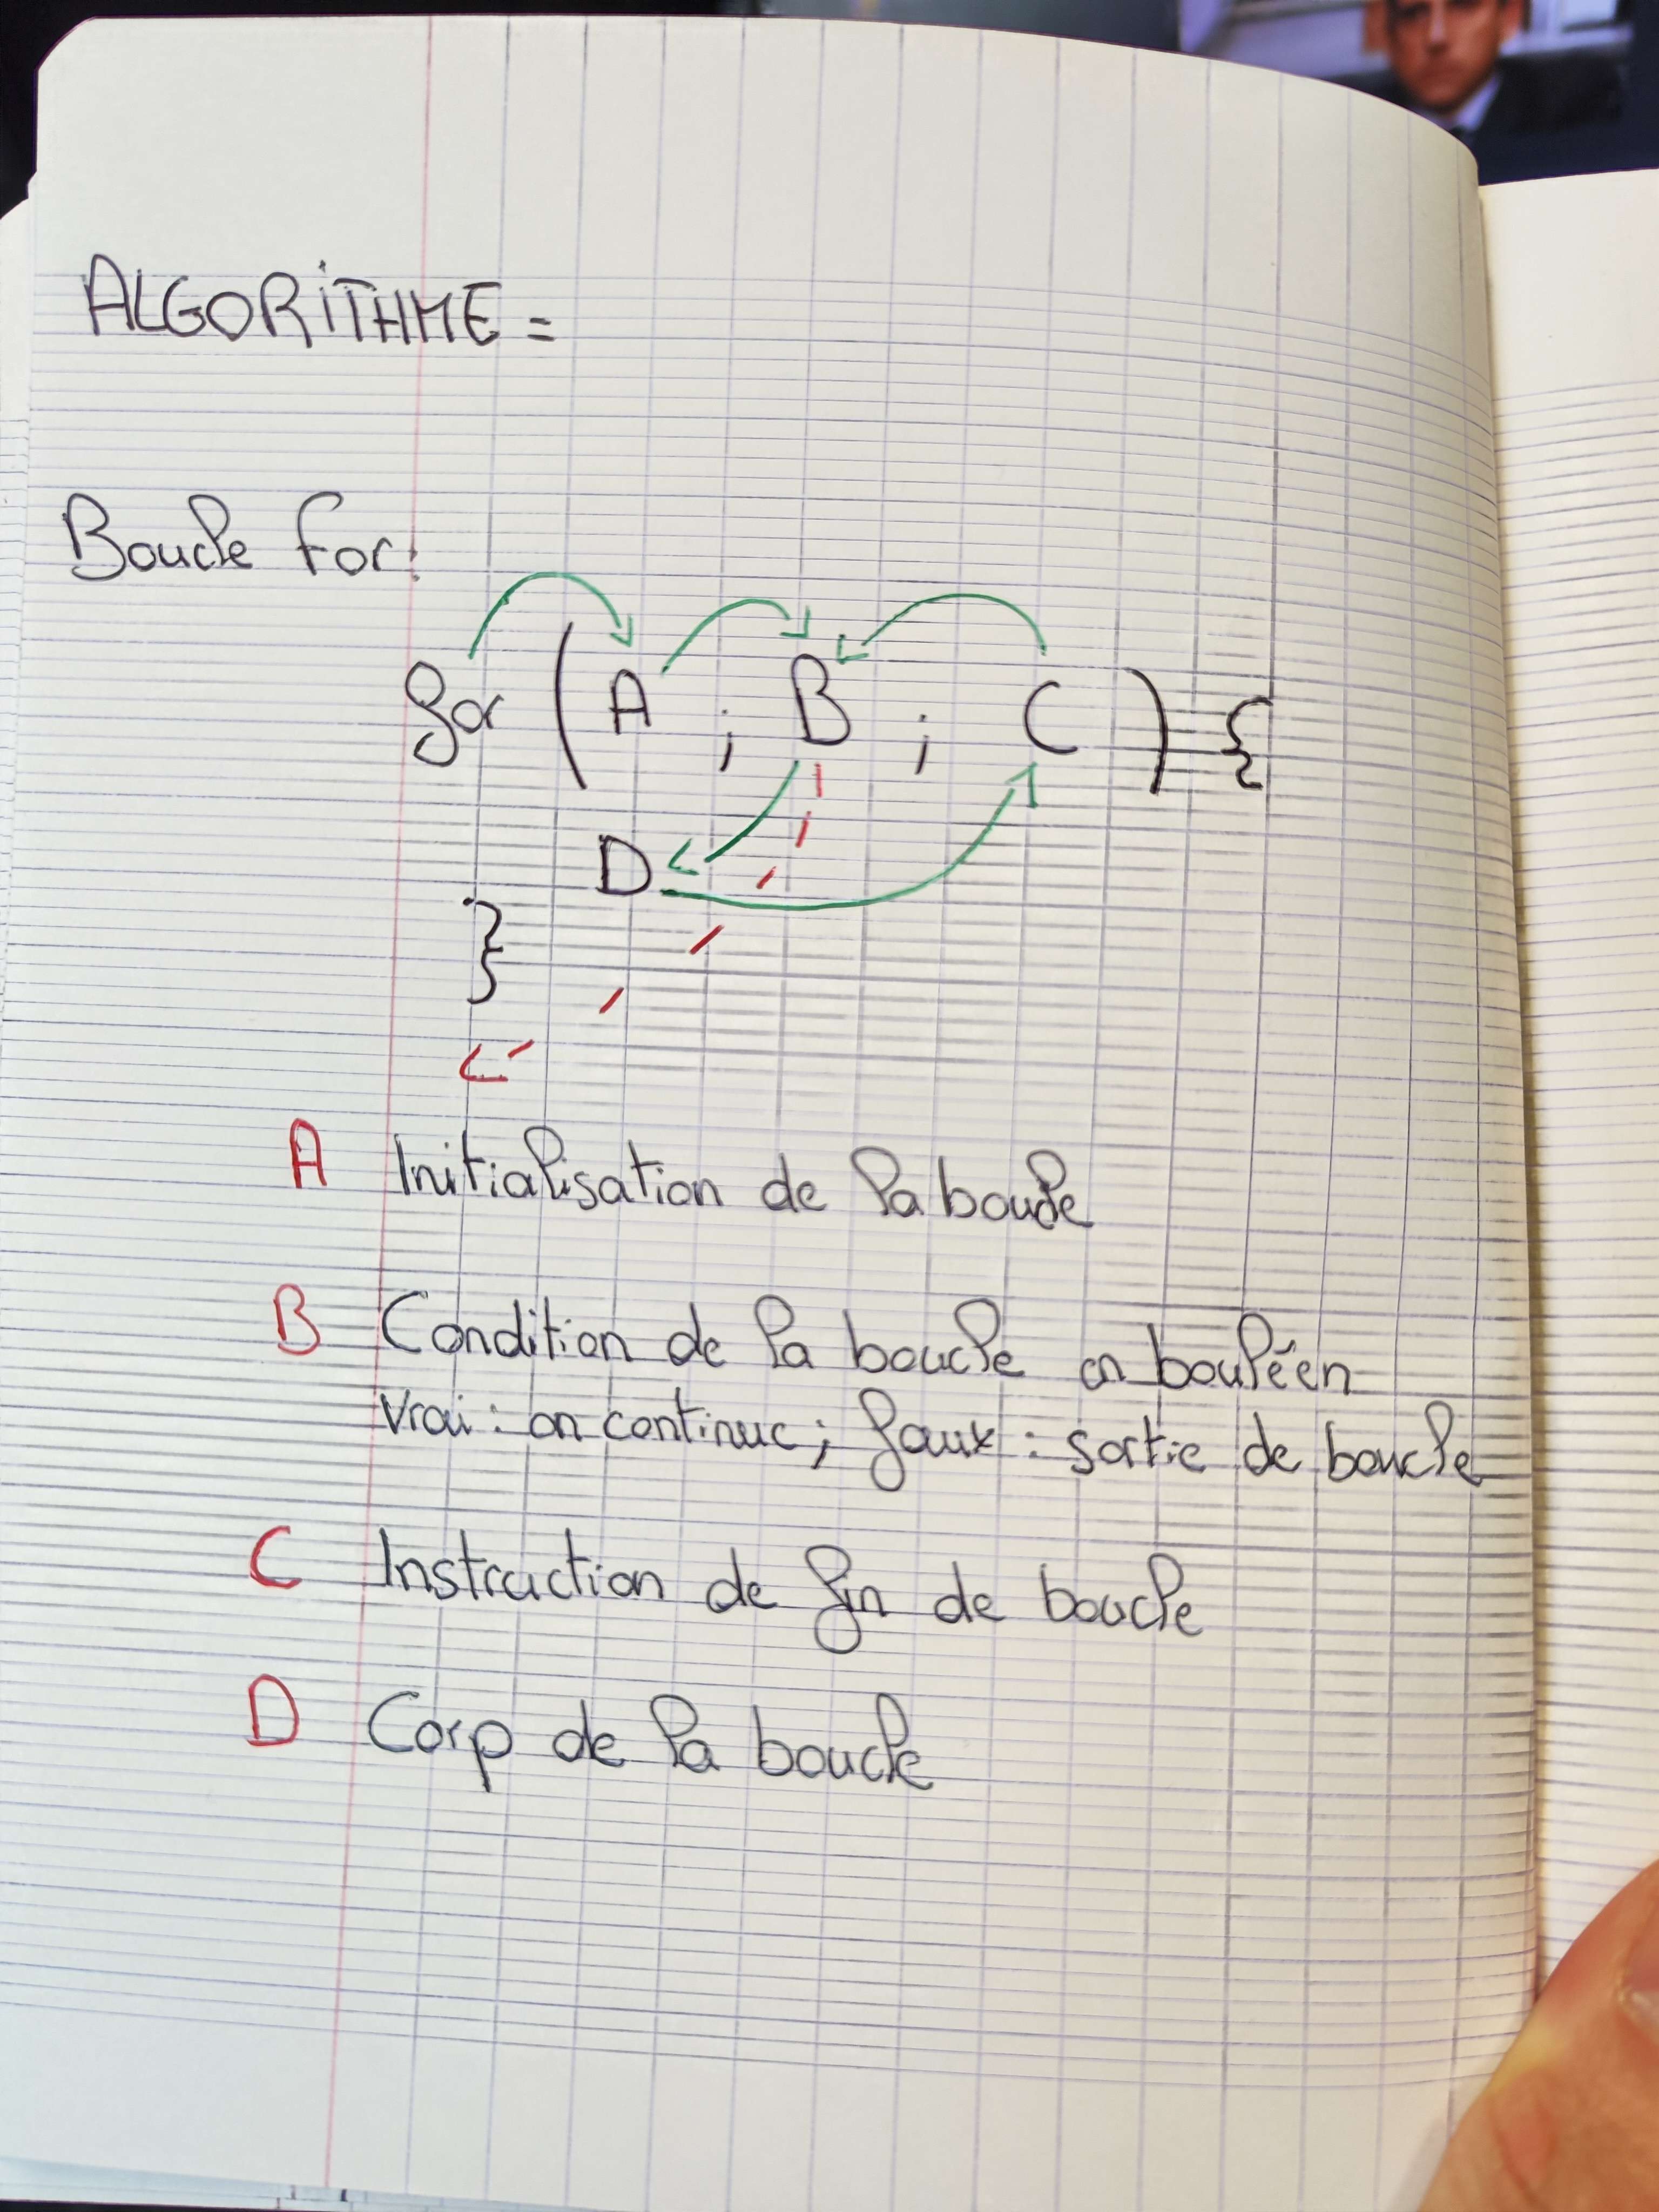 ALGORiTHME =
Boucle for:
for ( A ; B ; C ) {
D
}
A Initialisation de la boucle
B Condition de la boucle en bouléen
vrai : on continue ; faux : sortie de boucle
C Instruction de fin de boucle
D Corp de la boucle